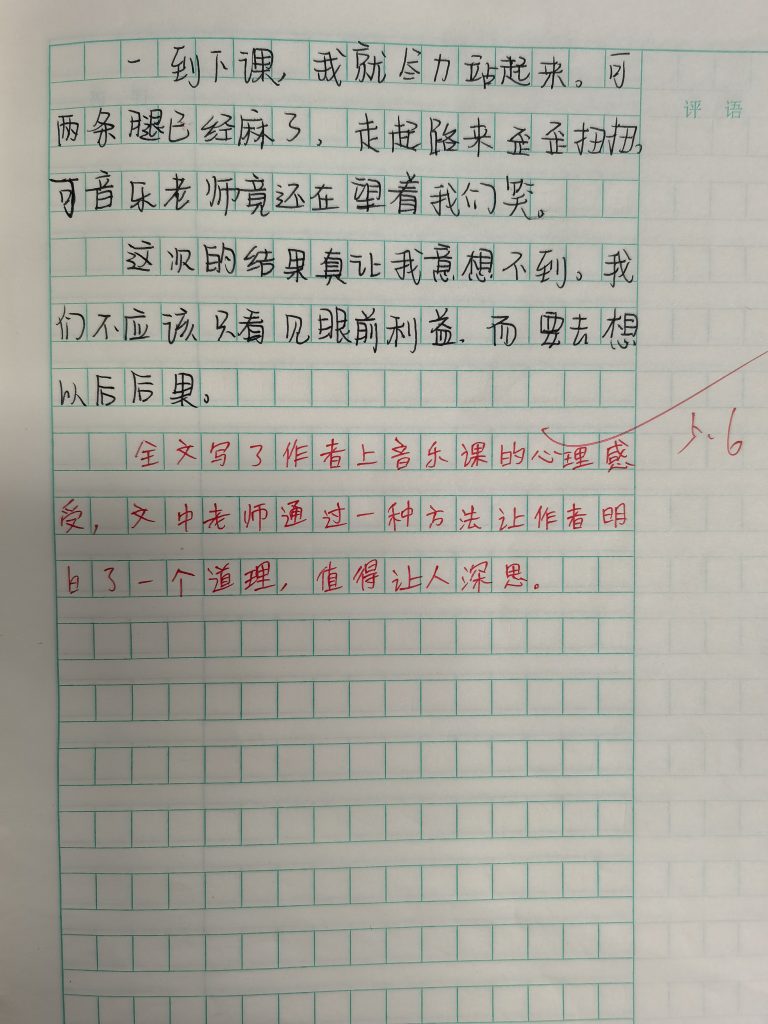 一到下课，我就尽力站起来。可
评 语
两条腿已经麻了，走起路来歪歪扭扭，
可音乐老师竟还在望着我们笑。
这次的结果真让我意想不到。我
们不应该只看见眼前利益，而要去想
以后后果。
5.6
全文写了作者上音乐课的心理感
受，文中老师通过一种方法让作者明
白了一个道理，值得让人深思。